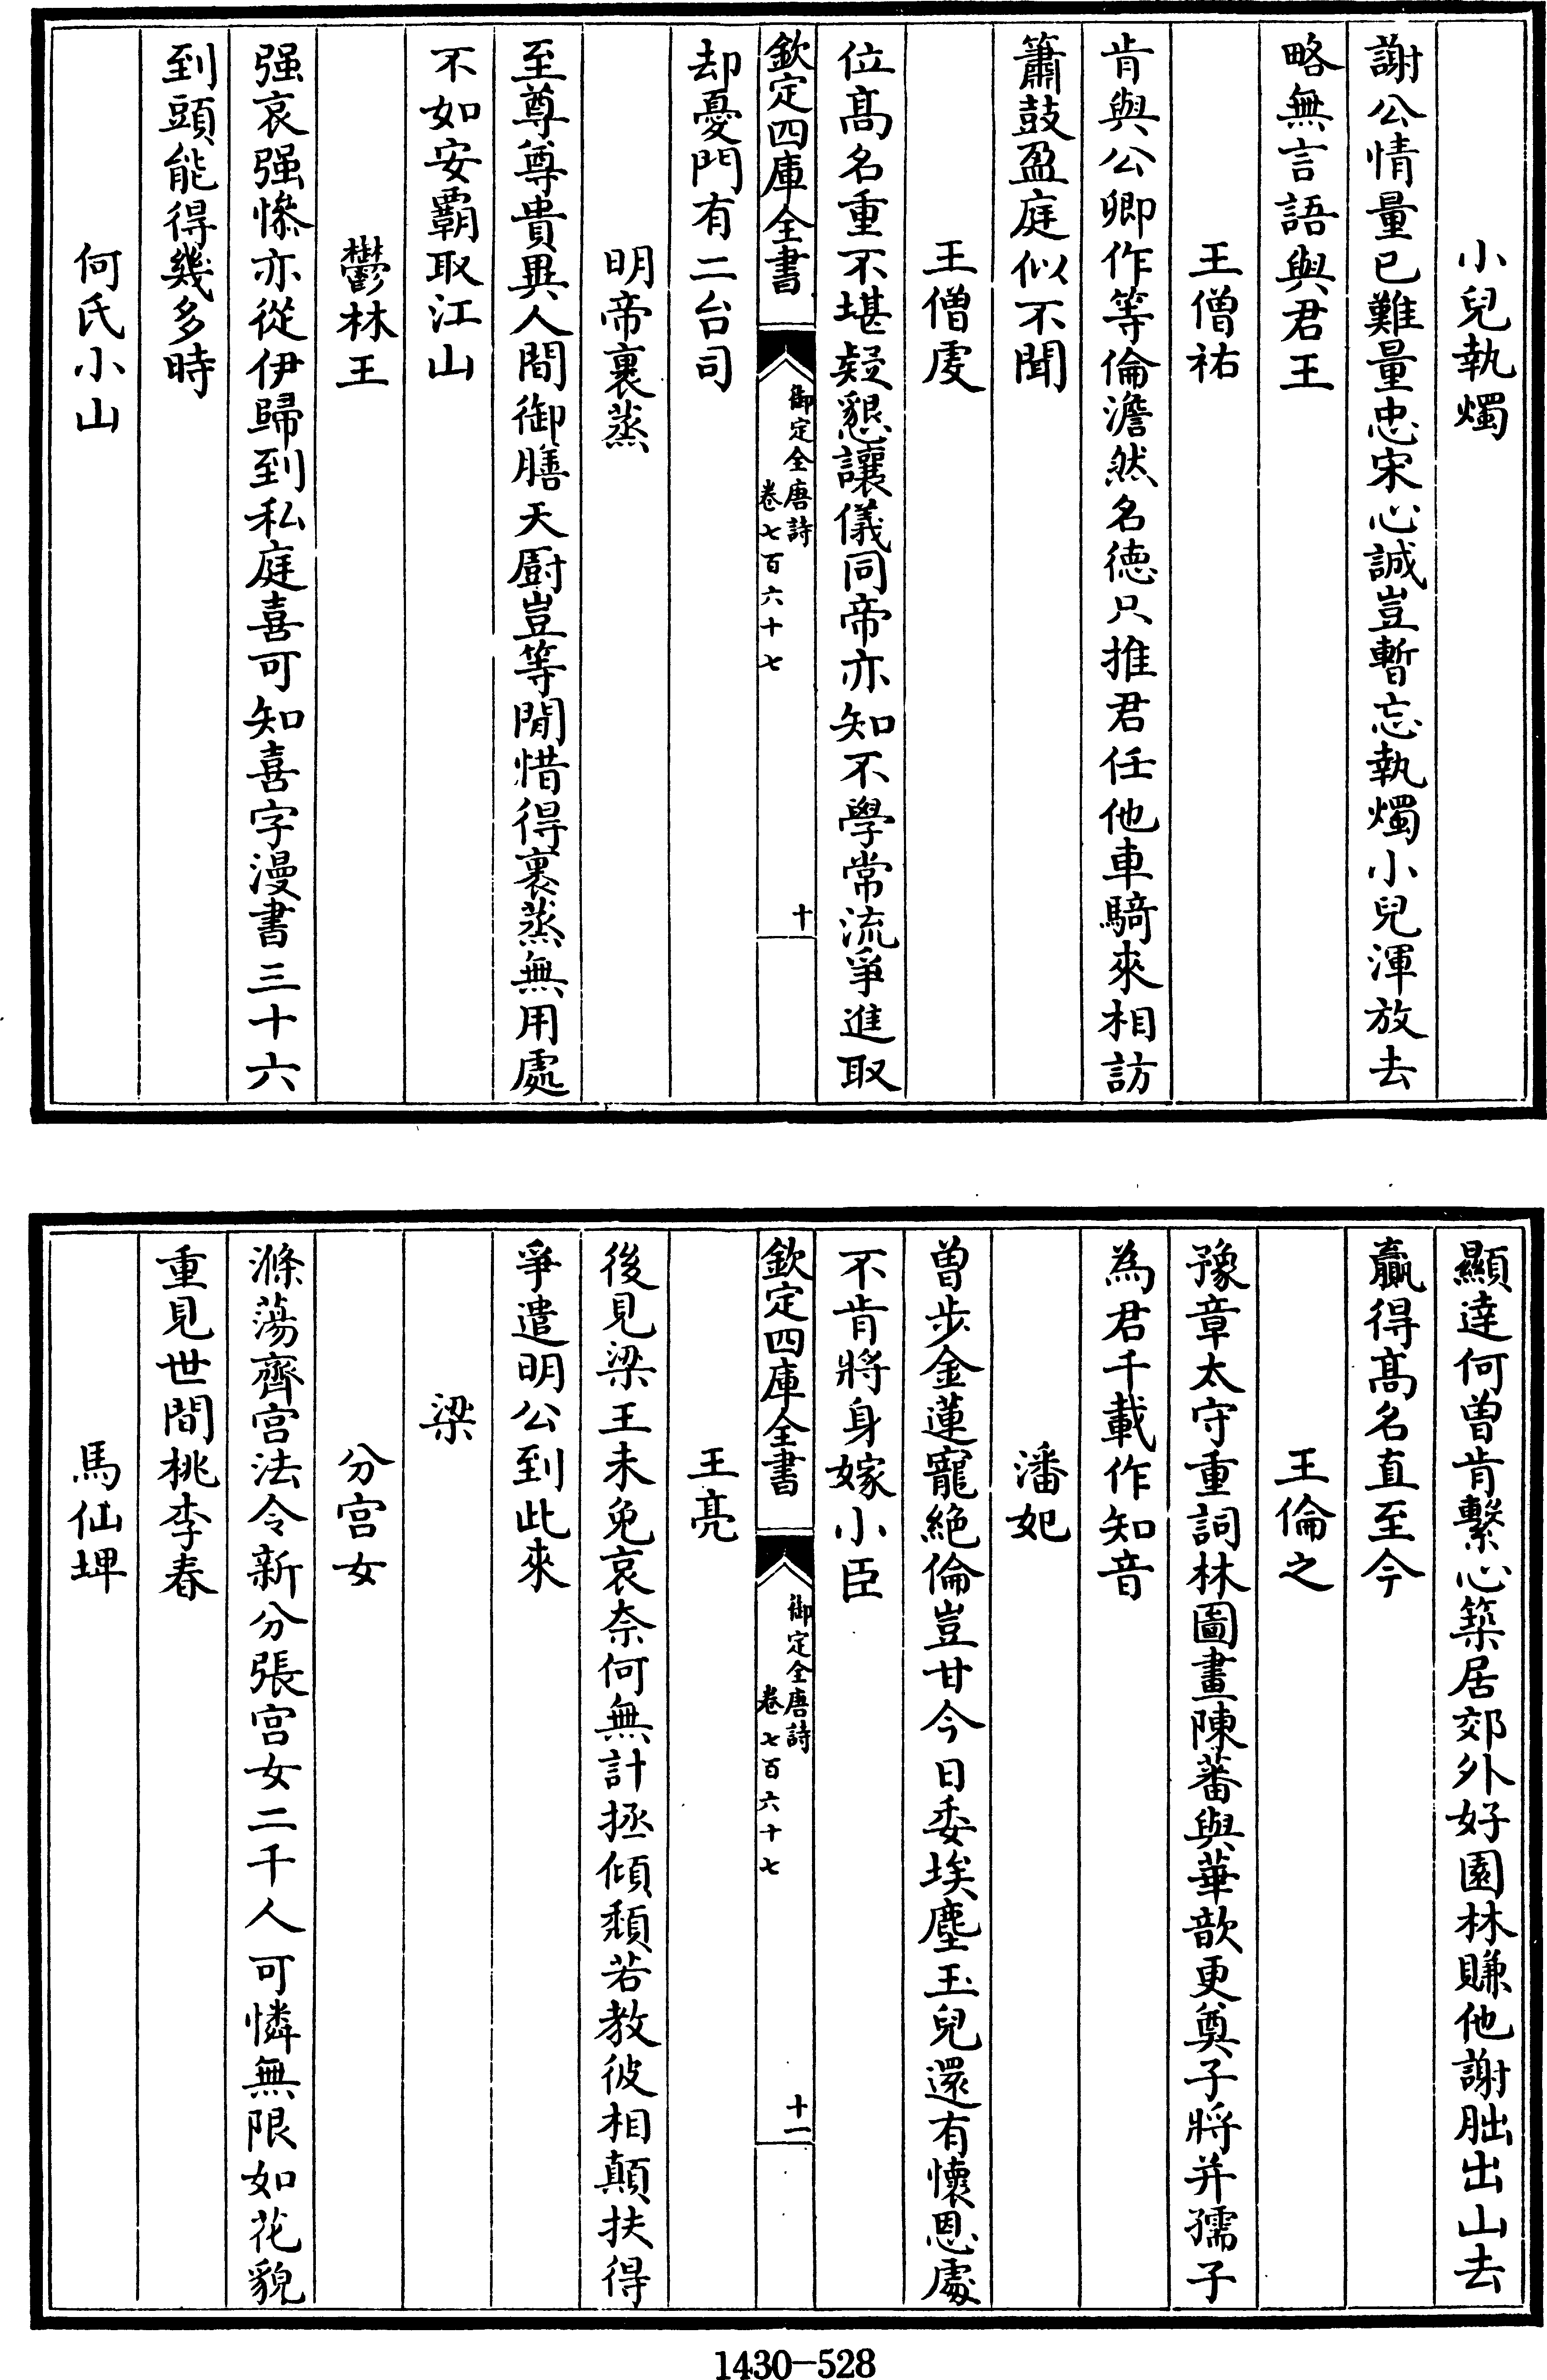 小兒執燭
謝公情量已難量忠宋心誠豈暫忘執燭小兒渾放去
略無言語與君王
王僧祐
肯與公卿作等倫澹然名德只推君任他車騎來相訪
簫鼓盈庭似不聞
王僧虔
位髙名重不堪疑懇讓儀同帝亦知不學常流爭進取
欽定四庫全書
御定全唐詩
卷七百六十七
十
却憂門有二台司
明帝裹蒸
至尊尊貴異人間御膳天厨豈等閒惜得裹蒸無用處
不如安霸取江山
鬱林王
强哀强慘亦從伊歸到私庭喜可知喜字漫書三十六
到頭能得幾多時
何氏小山
顯達何曽肯繫心築居郊外好園林賺他謝朏出山去
贏得髙名直至今
王倫之
豫章太守重詞林圖畫陳蕃與華歆更奠子將并孺子
為君千載作知音
潘妃
曽步金蓮寵絶倫豈甘今日委埃塵玉兒還有懷恩處
不肯將身嫁小臣
欽定四庫全書
御定全唐詩
卷七百六十七
十一
王亮
後見梁王未免哀奈何無計拯傾頹若教彼相顛扶得
爭遣明公到此來
梁
分宫女
滌蕩齊宫法令新分張宫女二千人可憐無限如花貌
重見世間桃李春
馬仙埤
1430-528